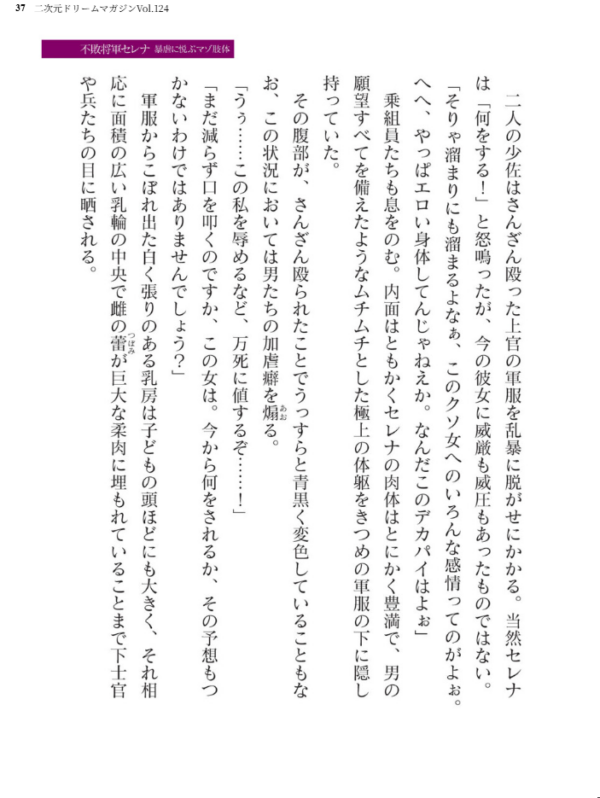 37 二次元ドリームマガジンVol.124
不敗将軍セレナ 暴虐に悦ぶマゾ肢体
二人の少佐はさんざん殴った上官の軍服を乱暴に脱がせにかかる。当然セレナ
は「何をする！」と怒鳴ったが、今の彼女に威厳も威圧もあったものではない。
「そりゃ溜まりにも溜まるよなぁ、このクソ女へのいろんな感情ってのがよぉ。
へへ、やっぱエロい身体してんじゃねえか。なんだこのデカパイはよぉ」
乗組員たちも息をのむ。内面はともかくセレナの肉体はとにかく豊満で、男の
願望すべてを備えたようなムチムチとした極上の体躯をきつめの軍服の下に隠し
持っていた。
その腹部が、さんざん殴られたことでうっすらと青黒く変色していることもな
お、この状況においては男たちの加虐癖を煽る。
あお
「うぅ……この私を辱めるなど、万死に値するぞ……！」
「まだ減らず口を叩くのですか、この女は。今から何をされるか、その予想もつ
かないわけではありませんでしょう？」
軍服からこぼれ出た白く張りのある乳房は子どもの頭ほどにも大きく、それ相
応に面積の広い乳輪の中央で雌の蕾が巨大な柔肉に埋もれていることまで下士官
つぼみ
や兵たちの目に晒される。